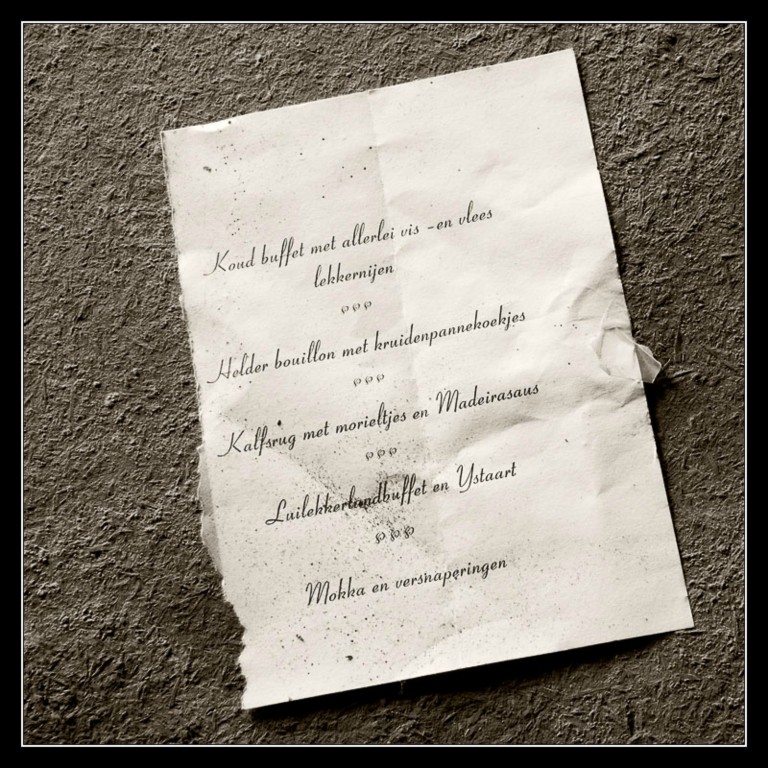 Koud buffet met allerlei vis -en vlees
lekkernijen
Helder bouillon met kruidenpannekoekjes
Kalfsrug met morieltjes en Madeirasaus
Luilekkerlandbuffet en Ystaart
Mokka en versnaperingen